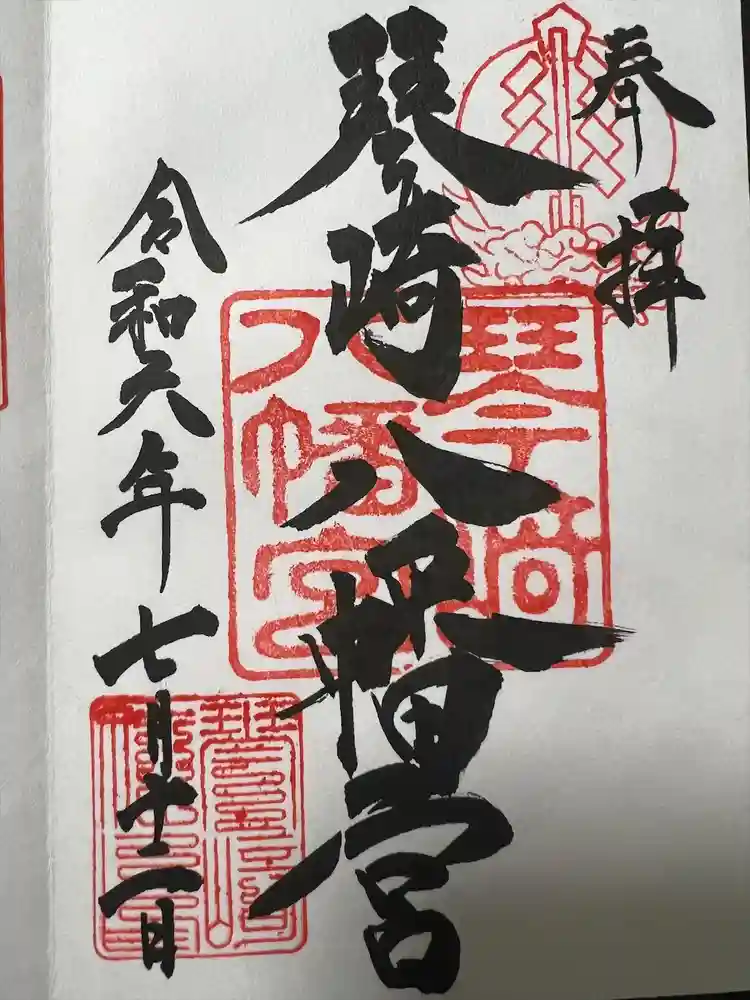 奉拝
琴崎八幡宮
琴崎八幡宮
令和六年七月十二日